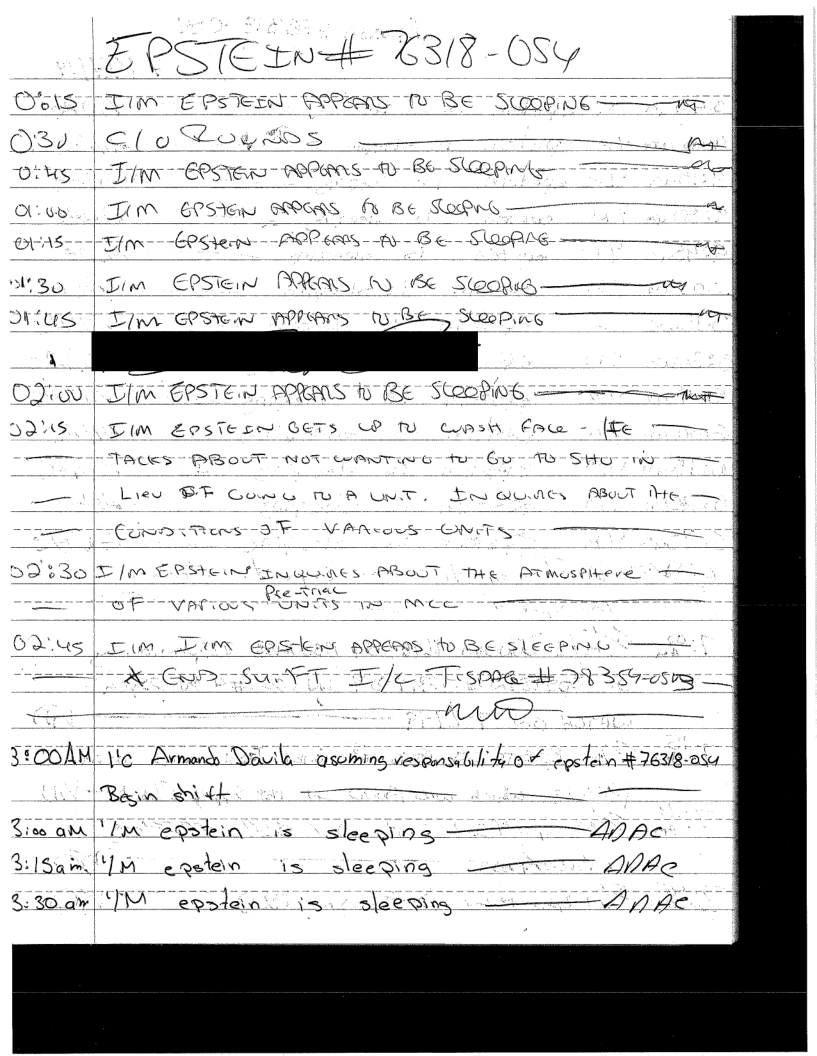 EPSTEIN # 76318-054
0:15 I/M EPSTEIN APPEARS TO BE SLEEPING
0:30 C/O ROUNDS
0:45 I/M EPSTEIN APPEARS TO BE SLEEPING
01:00 I/M EPSTEIN APPEARS TO BE SLEEPING
01:15 I/M EPSTEIN APPEARS TO BE SLEEPING
01:30 I/M EPSTEIN APPEARS TO BE SLEEPING
01:45 I/M EPSTEIN APPEARS TO BE SLEEPING
02:00 I/M EPSTEIN APPEARS TO BE SLEEPING
02:15 I/M EPSTEIN GETS UP TO WASH FACE - HE
TALKS ABOUT NOT WANTING TO GO TO SHU IN
LIEU OF GOING TO A UNIT. INQUIRES ABOUT THE
CONDITIONS OF VARIOUS UNITS
02:30 I/M EPSTEIN INQUIRES ABOUT THE ATMOSPHERE
OF VARIOUS Pre-trial UNITS IN MCC
02:45 I/M. I/M EPSTEIN APPEARS TO BE SLEEPING
* END SHIFT I/C #78354-
3:00AM I'C Armando Davila asuming responsibility of epstein #76318-054
Begin shift
3:00 am I/M epstein is sleeping ADAC
3:15am. I/M epstein is sleeping ADAC
3:30 am I/M epstein is sleeping ADAC